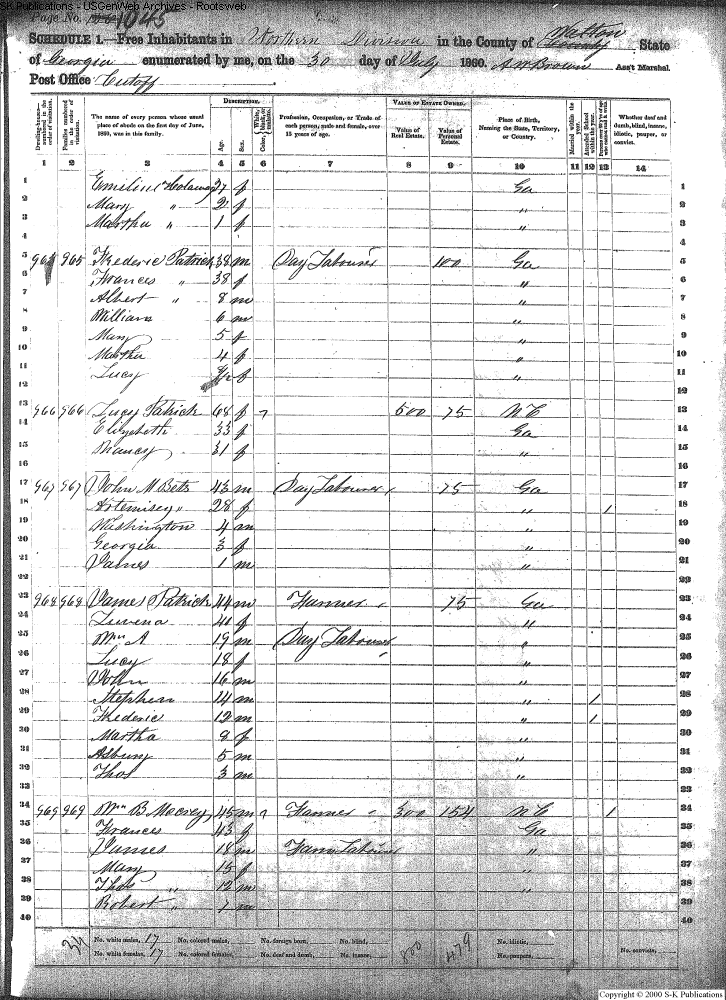 S-K Publications - USGenWeb Archives - Rootsweb
Page No. 1045
SCHEDULE 1.—Free Inhabitants in Northern Division in the County of Walton County State
of Georgia enumerated by me, on the 30 day of July 1860. A W Brown Ass't Marshal.
Post Office Cutoff
Dwelling-houses—numbered in the order of visitation.
Families numbered in the order of visitation.
The name of every person whose usual place of abode on the first day of June, 1860, was in this family.
DESCRIPTION.
Age.
Sex.
Color, White, black, or mulatto.
Profession, Occupation, or Trade of each person, male and female, over 15 years of age.
VALUE OF ESTATE OWNED.
Value of Real Estate.
Value of Personal Estate.
Place of Birth, Naming the State, Territory, or Country.
Married within the year.
Attended School within the year.
Persons over 20 years of age who cannot read & write.
Whether deaf and dumb, blind, insane, idiotic, pauper, or convict.
1 2 3 4 5 6 7 8 9 10 11 12 13 14
1 Emeline 27 f Ga 1
2 Mary " 2 f " 2
3 Martha " 1 f " 3
4 4
5 965 Frederic Patrick 38 m Day Labourer 100 Ga 5
6 Frances " 38 f " 6
7 Albert " 8 m " 7
8 William 6 m " 8
9 Mary 5 f " 9
10 Martha 4 f " 10
11 Lucy f " 11
12 12
13 966 966 Lucy Patrick 68 f 500 75 N C 13
14 Elizabeth 33 f Ga 14
15 Nancy 31 f " 15
16 16
17 967 967 John M Betts 43 m Day Labourer 75 Ga 17
18 Artemisey " 28 f " / 18
19 Washington 4 m " 19
20 Georgia 3 f " 20
21 James 1 m " 21
22 22
23 968 968 James Patrick 44 m Farmer 75 Ga 23
24 Luvena 40 f " 24
25 Wm A 19 m Day Labourer " 25
26 Lucy 18 f " 26
27 John 16 m " 27
28 Stephen 14 m " / 28
29 Frederic 12 m " / 29
30 Martha 8 f " 30
31 Asbury 5 m " 31
32 Thos 3 m " 32
33 33
34 969 969 Wm B 45 m Farmer 300 154 N C / 34
35 Frances 43 f Ga 35
36 James 18 m Farm Labourer " 36
37 Mary 15 f " 37
38 Thos " 12 m " 38
39 Robert " 7 m " 39
40 40
34 No. white males, 17 No. colored males, No. foreign born, No. blind, 800 479 No. idiotic, No. convicts,
No. white females, 17 No. colored females, No. deaf and dumb, No. insane, No. paupers,
Copyright © 2000 S-K Publications